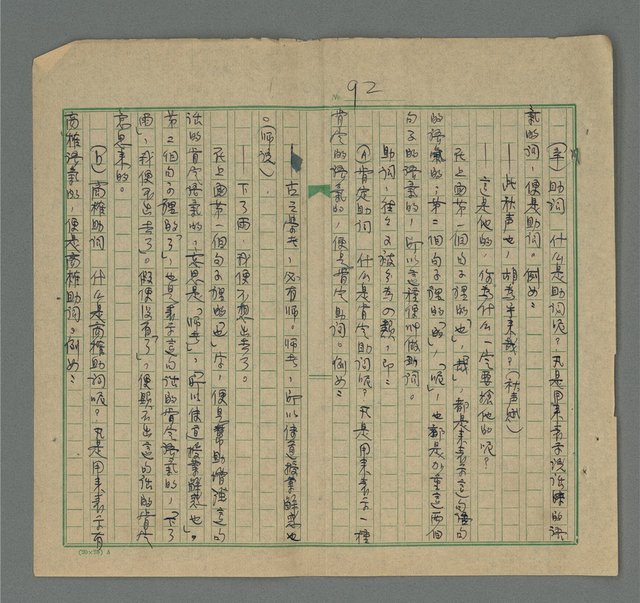 92
(辛)助詞　什么是助詞呢？凡是用来表示說話时的語
氣的詞，便是助詞。例如：
——此秋声也，胡為乎来哉？（秋声賦）
——这是他的，你為什么一定要搶他的呢？
在上面第一個句子裡的「也」，「哉」，都是来表示这句话
的語氣的，第二個句子裡的「的」，「呢」，也都是加重这兩個
句子的語氣的，所以这種便叫做助詞。
助詞，往往又被分為の類，即：
(a)肯定助詞　什么是肯定助詞呢？凡是用来表示一種
肯定的語氣的，便是肯定助詞。例如：
——古之學者，必有师。师者，所以傳道授業解惑也
。（师說），
——下了雨，我便不想出去了。
在上面第一個句子裡的「也」字，便是幫助增强这句
話的肯定語氣的，意思是「师者」，「所以傳道授業解惑也」。
第二個句子裡的「了」，也是表示这句话的肯定語氣的，「下了
雨」，我便不出去了。假使沒有「了」，便顯不出这句話的肯定
意思来的。
(b)商榷助詞　什么是商榷助詞呢？凡是用来表示有
商榷語氣的，便是商榷助詞。例如：
(20×25)A